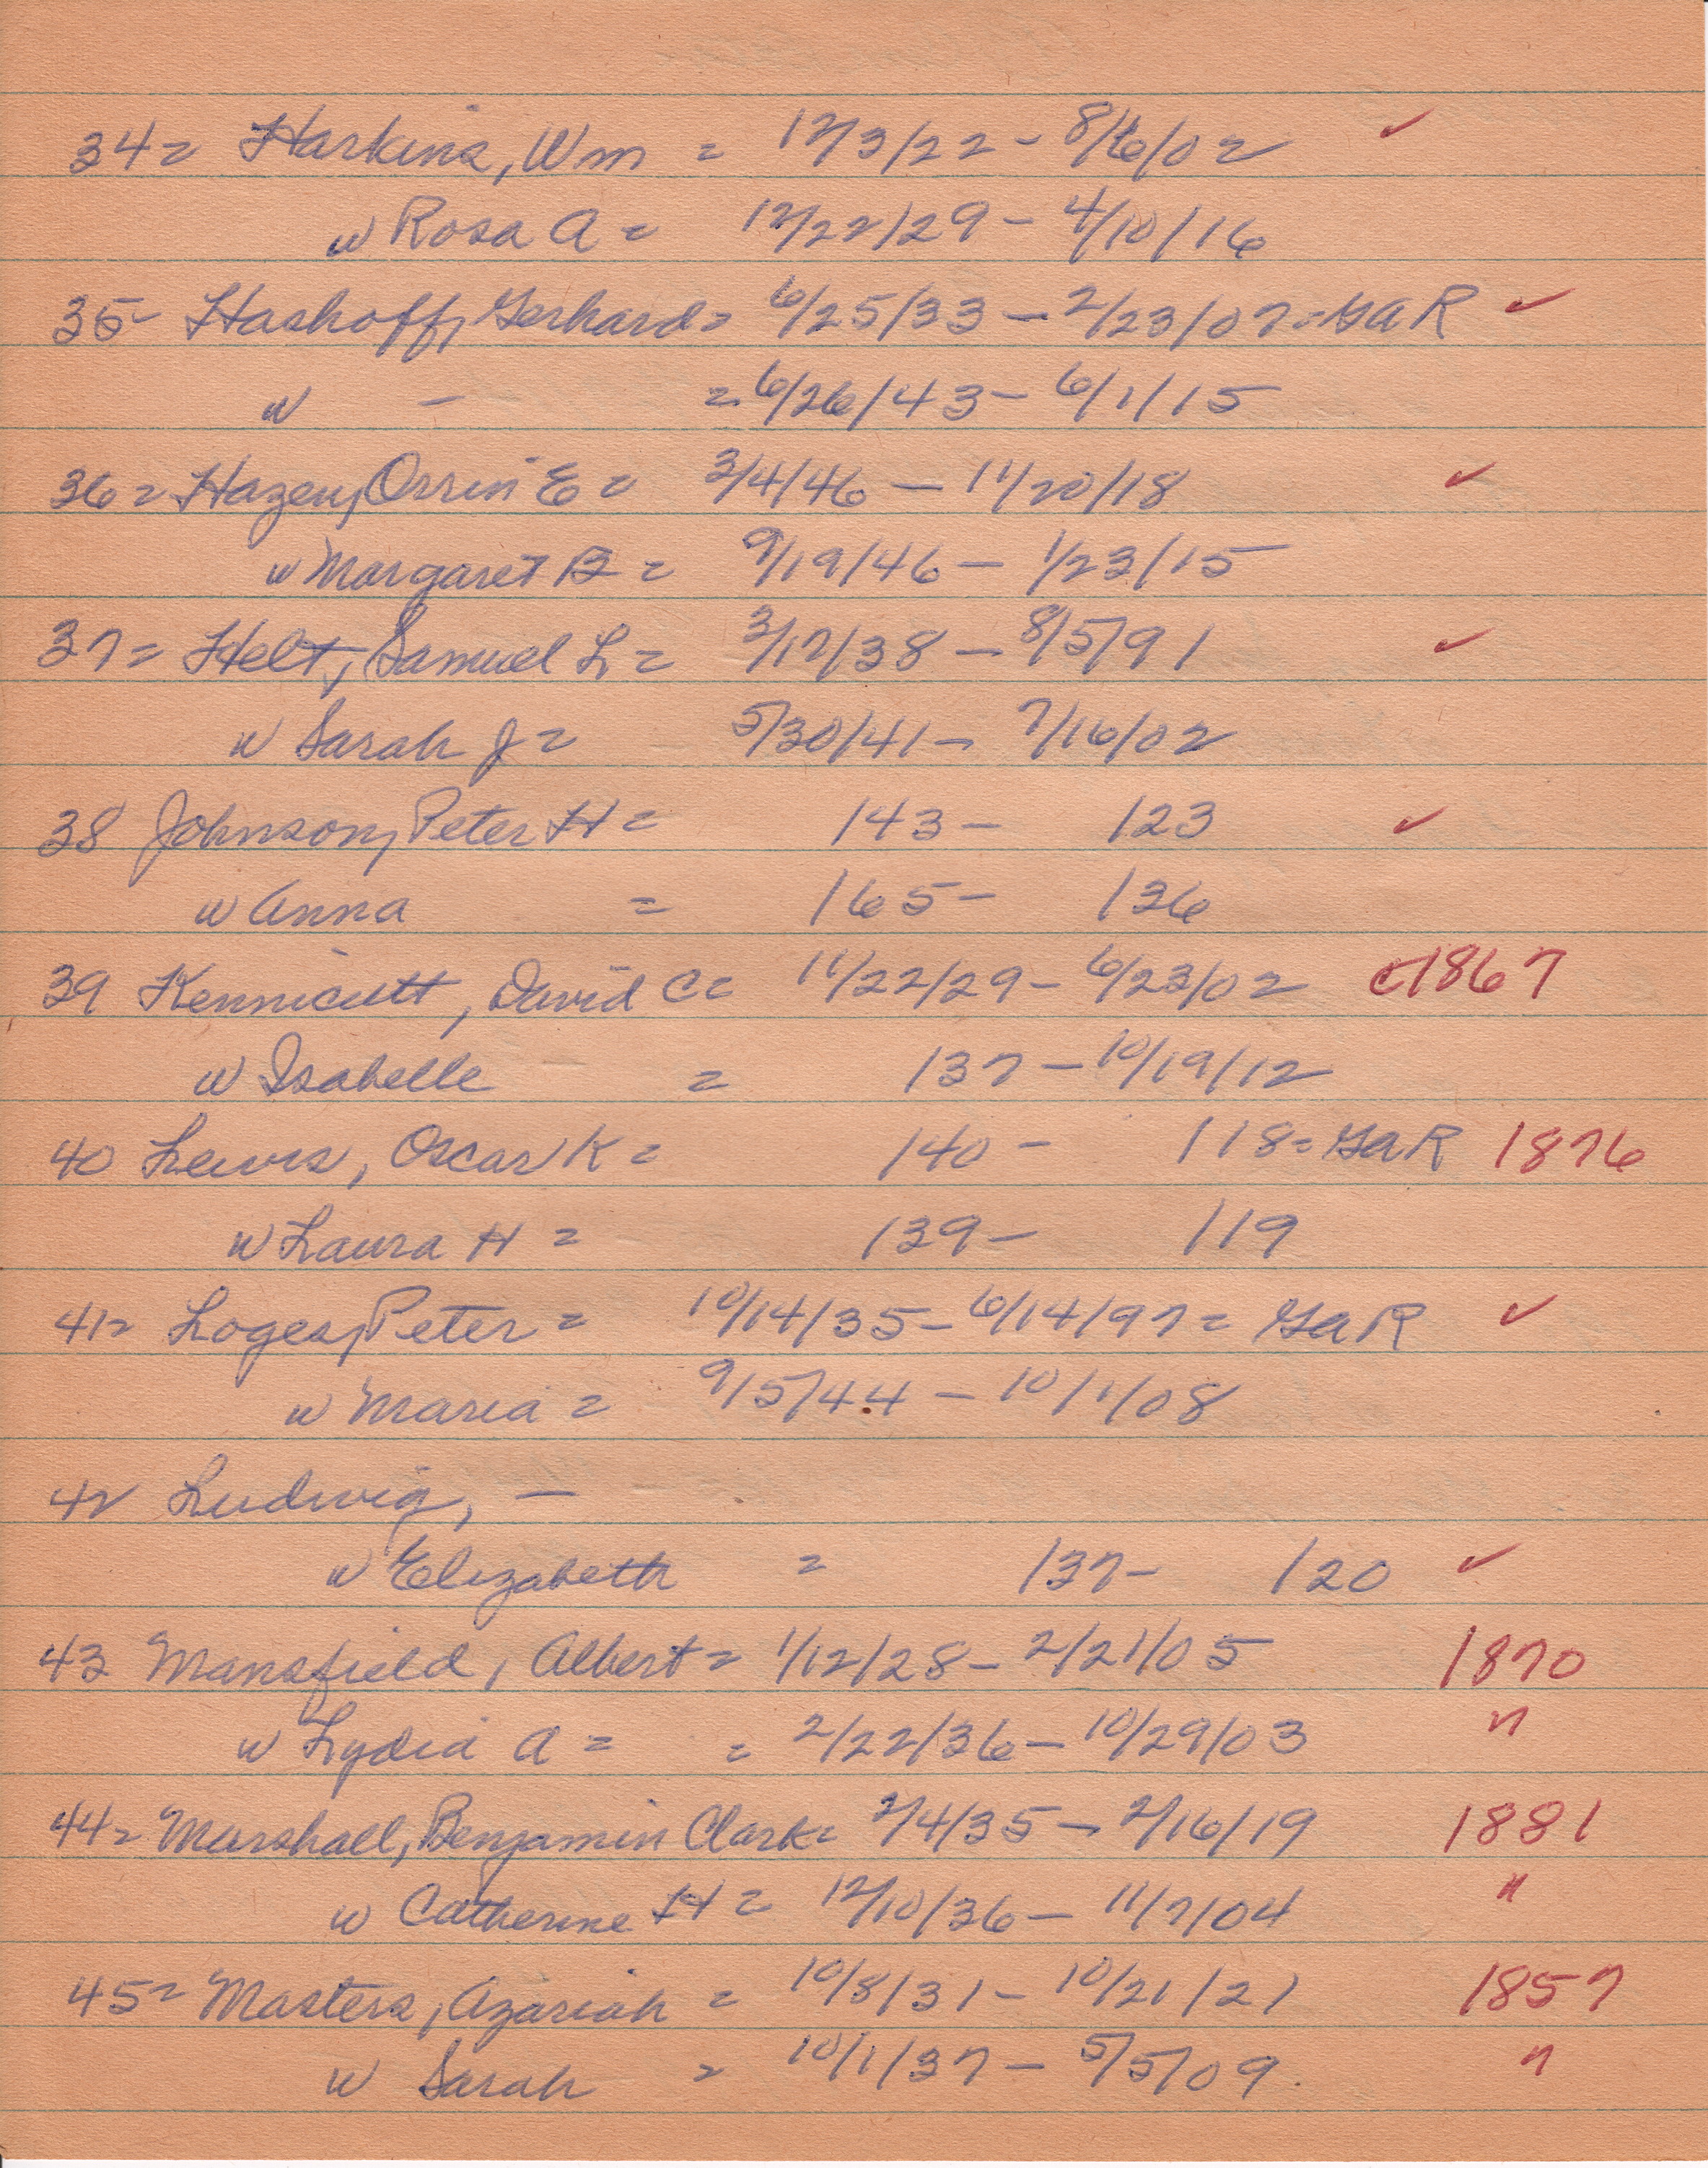 34= Harkins, Wm = 12/3/22 - 8/16/02 ✓
w Rosa A = 12/22/29 - 4/10/16
35- Hashoff, Gerhard = 6/25/33 - 2/23/07 = GAR ✓
w - = 6/26/43 - 6/1/15
36= Hazen, Orrin E = 3/4/46 - 11/20/18 ✓
w Margaret B = 9/19/46 - 1/23/15
37= Helt, Samuel L = 3/17/38 - 8/5/91 ✓
w Sarah J = 5/30/41 - 7/16/02
38 Johnson, Peter H = 143 - 123 ✓
w Anna = 165 - 136
39 Kennicutt, David C = 11/22/29 - 6/23/02 c1867
w Isabelle = 137 - 10/19/12
40 Lewis, Oscar K = 140 - 118 = GAR 1876
w Laura H = 139 - 119
41= Loges, Peter = 10/14/35 - 6/14/97 = GAR ✓
w Maria = 9/5/44 - 10/1/08
42 Ludwig, -
w Elizabeth = 137 - 120 ✓
43 Mansfield, Albert = 1/12/28 - 2/21/05 1870
w Lydia A = = 2/22/36 - 10/29/03 "
44= Marshall, Benjamin Clark = 2/4/35 - 2/16/19 1881
w Catherine H = 12/10/36 - 11/7/04 "
45= Masters, Azariah = 10/8/31 - 10/21/21 1857
w Sarah = 10/1/37 - 5/5/09. "